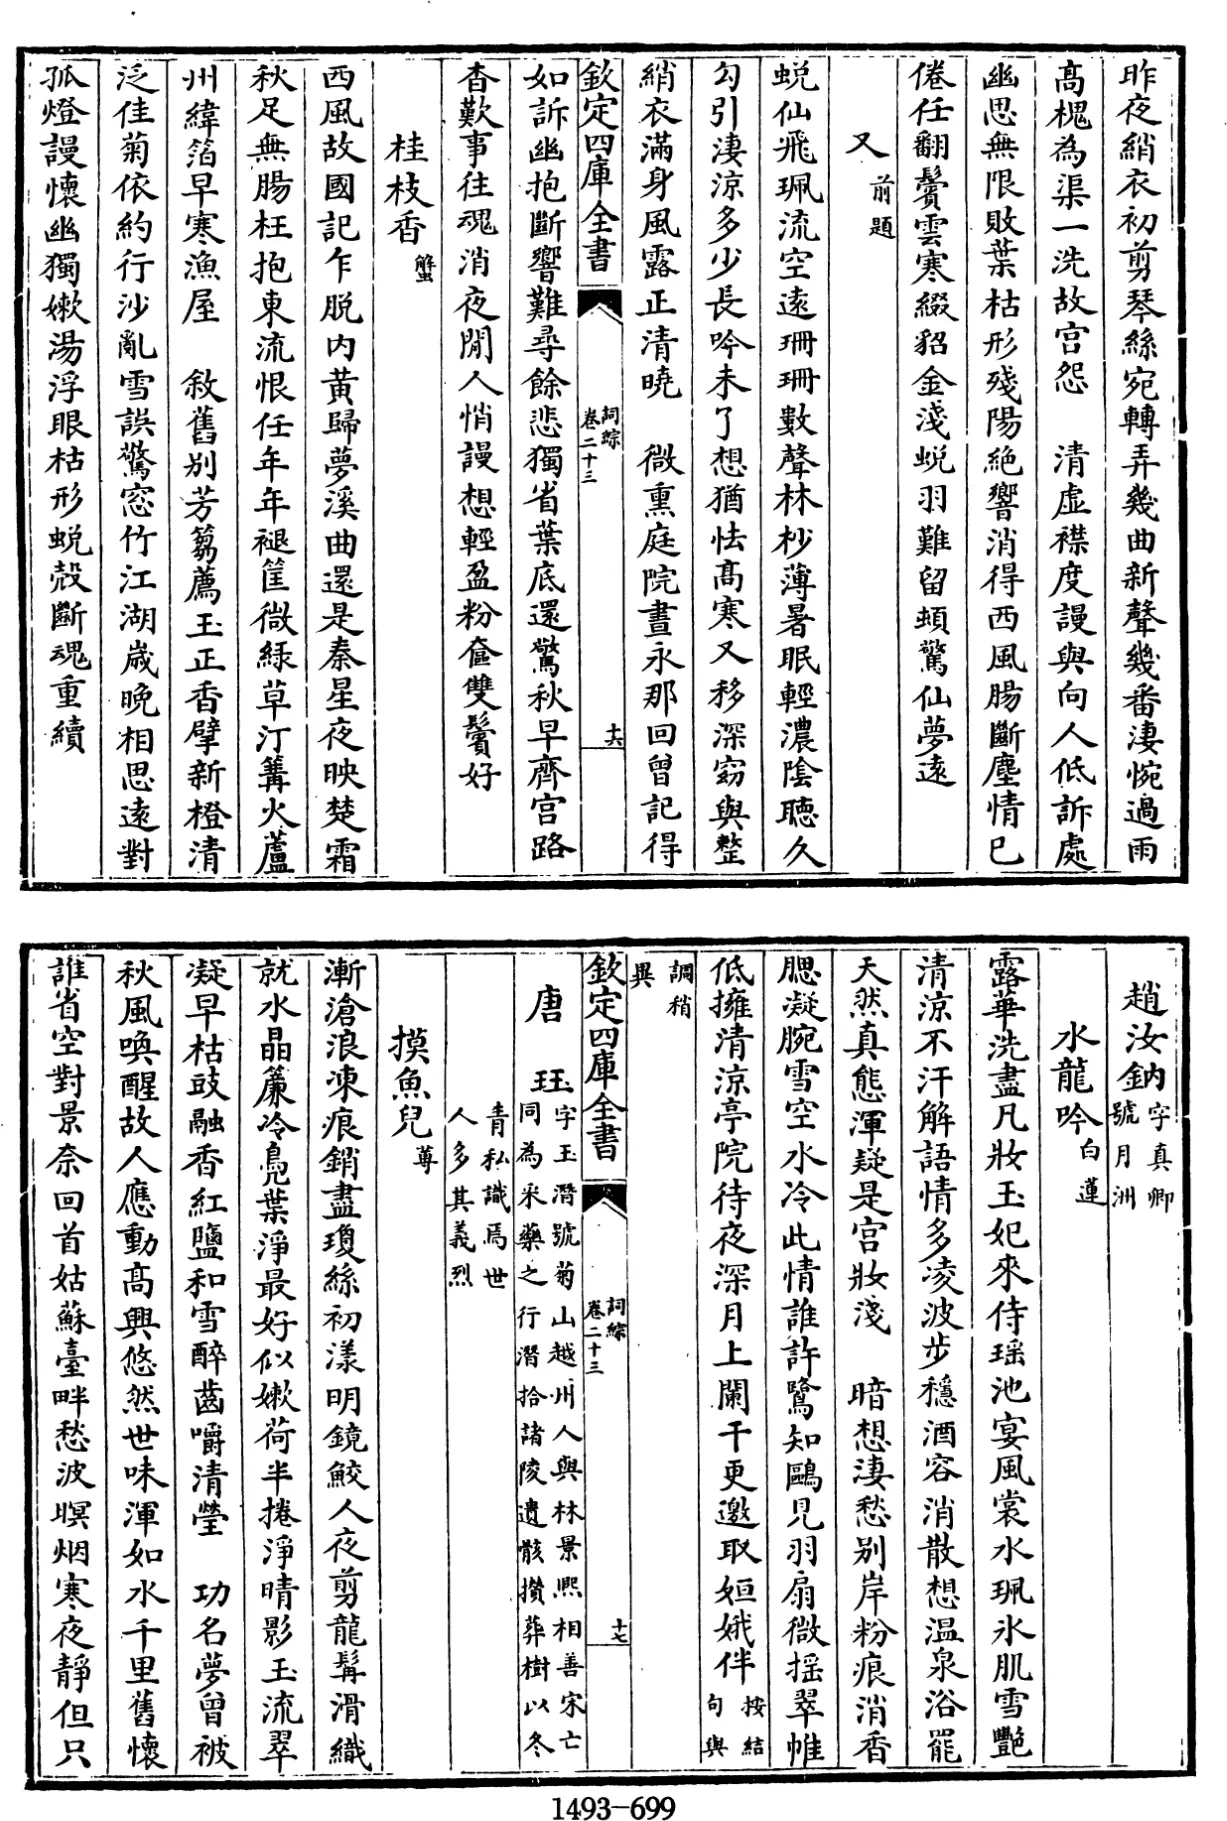 昨夜綃衣初剪琴絲宛轉弄幾曲新聲幾番淒惋過雨
高槐為渠一洗故宮怨　清虛襟度謾與向人低訴處
幽思無限敗葉枯形殘陽絶響消得西風腸斷塵情已
倦任翻鬢雲寒綴貂金淺蜕羽難留頓驚仙夢逺
又前題
蜕仙飛珮流空逺珊珊數聲林杪薄暑眠輕濃陰聴久
勾引淒涼多少長吟未了想猶怯高寒又移深窈與整
綃衣滿身風露正清曉　微熏庭院晝永那回曾記得
欽定四庫全書
詞綜
卷二十三
十六
如訴幽抱斷響難尋餘悲獨省葉底還驚秋早齊宮路
杳歎事往魂消夜閒人悄謾想輕盈粉奩雙鬢好
桂枝香蟹
西風故國記乍脱内黄歸夢溪曲還是秦星夜映楚霜
秋足無腸枉抱東流恨任年年褪筐微緑草汀篝火蘆
州緯箔早寒漁屋　敘舊别芳蒭薦玉正香擘新橙清
泛佳菊依約行沙亂雪誤驚窓竹江湖歲晩相思逺對
孤燈謾懷幽獨嫰湯浮眼枯形蜕殼斷魂重續
趙汝鈉字真卿
號月洲
水龍吟白蓮
露華洗盡凡妝玉妃來侍瑶池宴風裳水珮氷肌雪艷
清涼不汗解語情多凌波步穩酒容消散想温泉浴罷
天然真態渾疑是宮妝淺　暗想淒愁别岸粉痕消香
腮凝腕雪空水冷此情誰許鷺知鷗見羽扇微揺翠帷
低擁清涼亭院待夜深月上闌干更邀取姮娥伴按結
句與
調稍
異
欽定四庫全書
詞綜
卷二十三
十七
唐珏字玉潛號菊山越州人與林景熈相善宋亡
同為采藥之行潛拾諸陵遺骸攢葬樹以冬
青私識焉世
人多其義烈
摸魚兒蓴
漸滄浪凍痕銷盡瓊絲初漾明鏡鮫人夜剪龍髯滑織
就水晶簾冷鳬葉淨最好似嫰荷半捲淨晴影玉流翠
凝早枯豉融香紅鹽和雪醉齒嚼清瑩　功名夢曾被
秋風喚醒故人應動高興悠然世味渾如水千里舊懷
誰省空對景奈回首姑蘇臺畔愁波暝烟寒夜靜但只
1493-699